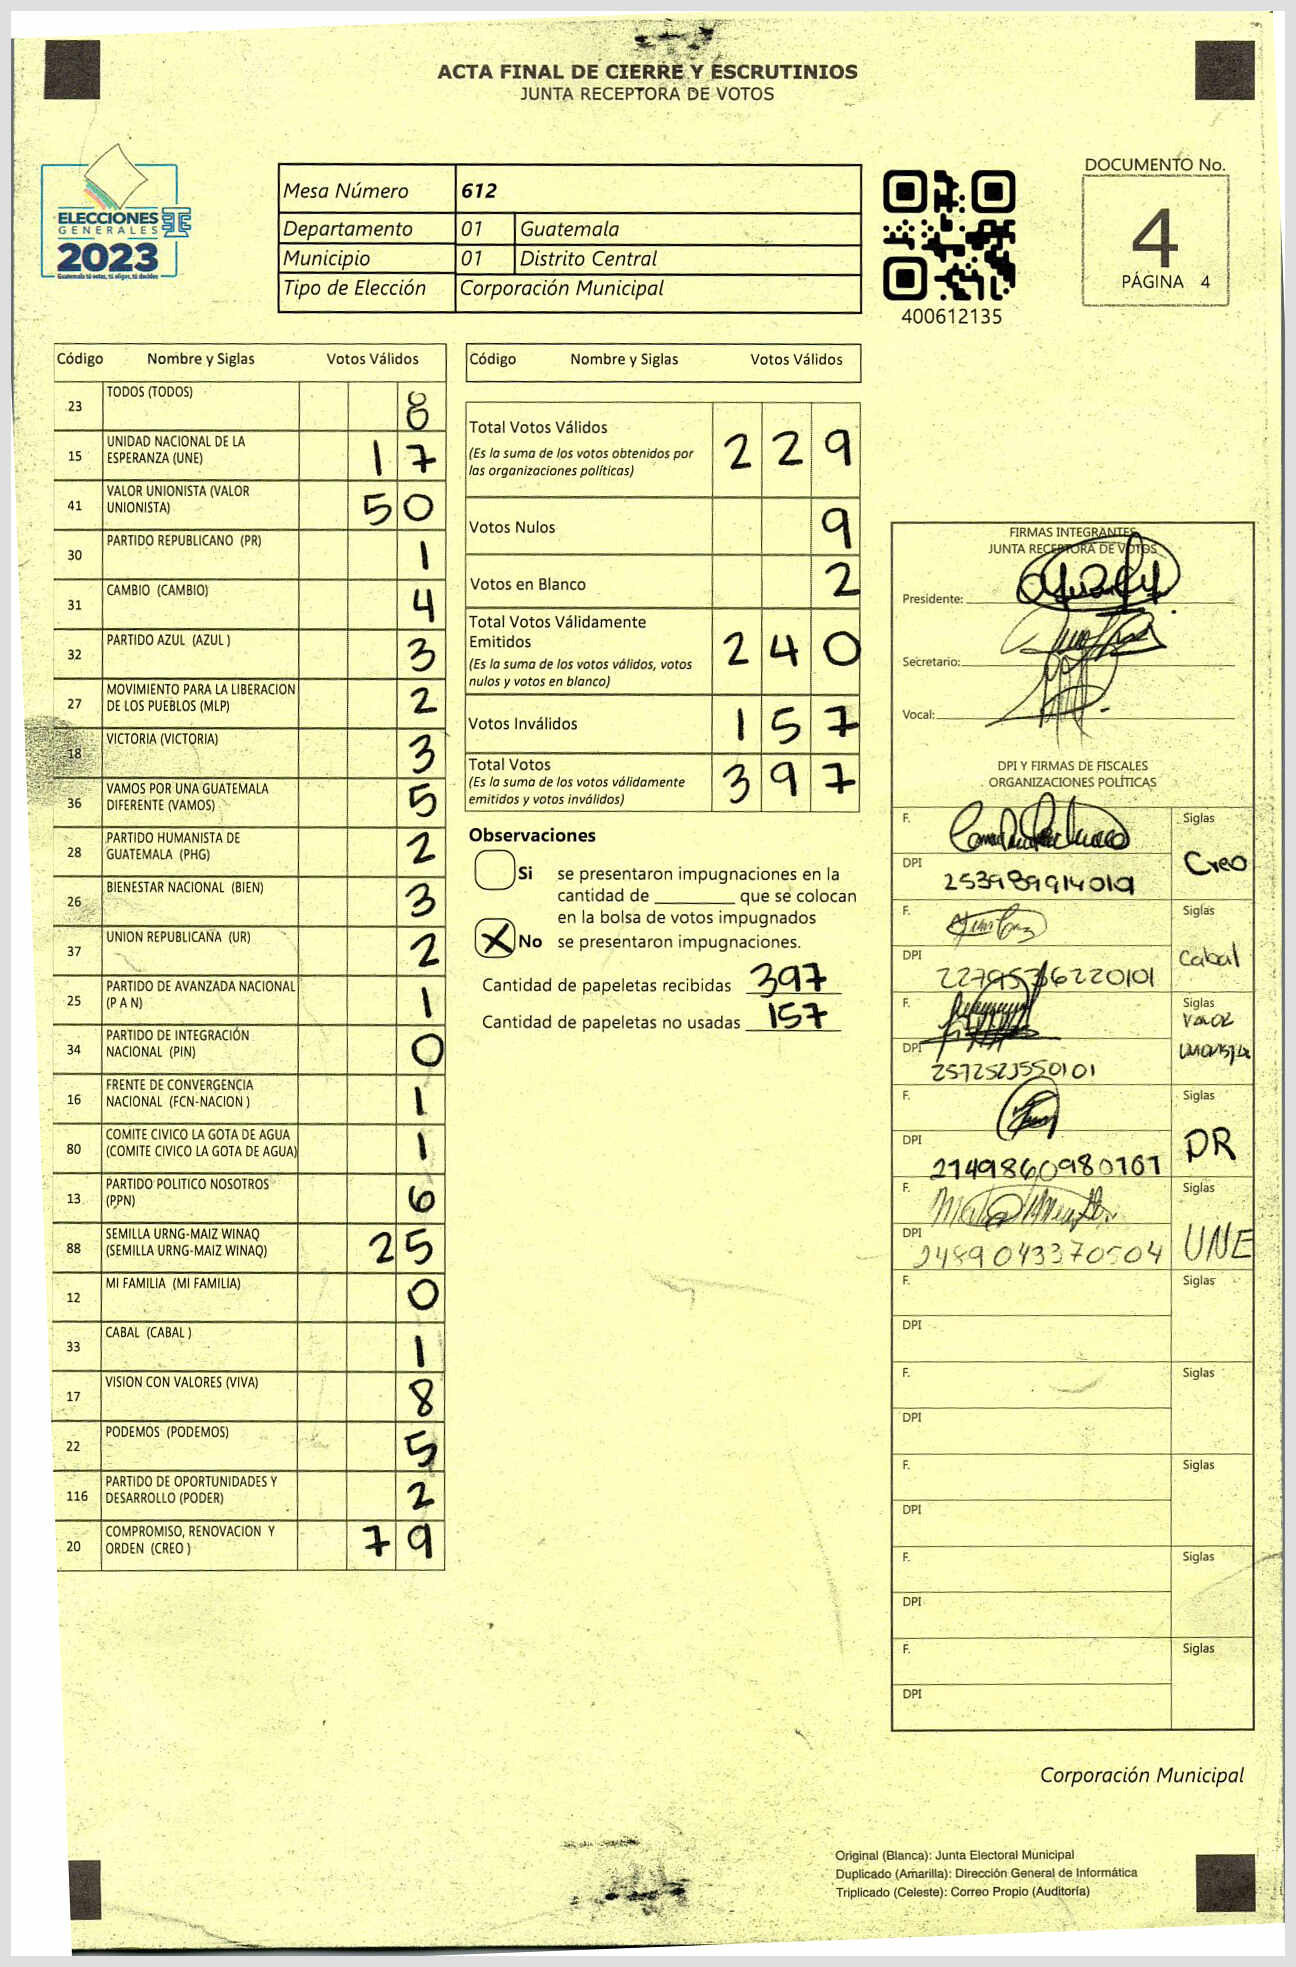 ACTA FINAL DE CIERRE Y ESCRUTINIOS
JUNTA RECEPTORA DE VOTOS
ELECCIONES
GENERALES
2023
Guatemala tú votas, tú eliges, tú decides
Mesa Número 612
Departamento 01 Guatemala
Municipio 01 Distrito Central
Tipo de Elección Corporación Municipal
400612135
DOCUMENTO No.
4
PÁGINA 4
Código Nombre y Siglas Votos Válidos
23 TODOS (TODOS) 8
15 UNIDAD NACIONAL DE LA
ESPERANZA (UNE) 17
41 VALOR UNIONISTA (VALOR
UNIONISTA) 50
30 PARTIDO REPUBLICANO (PR) 1
31 CAMBIO (CAMBIO) 4
32 PARTIDO AZUL (AZUL ) 3
27 MOVIMIENTO PARA LA LIBERACION
DE LOS PUEBLOS (MLP) 2
18 VICTORIA (VICTORIA) 3
36 VAMOS POR UNA GUATEMALA
DIFERENTE (VAMOS) 5
28 PARTIDO HUMANISTA DE
GUATEMALA (PHG) 2
26 BIENESTAR NACIONAL (BIEN) 3
37 UNION REPUBLICANA (UR) 2
25 PARTIDO DE AVANZADA NACIONAL
(P A N) 1
34 PARTIDO DE INTEGRACIÓN
NACIONAL (PIN) 0
16 FRENTE DE CONVERGENCIA
NACIONAL (FCN-NACION ) 1
80 COMITE CIVICO LA GOTA DE AGUA
(COMITE CIVICO LA GOTA DE AGUA) 1
13 PARTIDO POLITICO NOSOTROS
(PPN) 6
88 SEMILLA URNG-MAIZ WINAQ
(SEMILLA URNG-MAIZ WINAQ) 25
12 MI FAMILIA (MI FAMILIA) 0
33 CABAL (CABAL ) 1
17 VISION CON VALORES (VIVA) 8
22 PODEMOS (PODEMOS) 5
116 PARTIDO DE OPORTUNIDADES Y
DESARROLLO (PODER) 2
20 COMPROMISO, RENOVACION Y
ORDEN (CREO ) 79
Código Nombre y Siglas Votos Válidos
Total Votos Válidos 229
(Es la suma de los votos obtenidos por
las organizaciones políticas)
Votos Nulos 9
Votos en Blanco 2
Total Votos Válidamente
Emitidos 240
(Es la suma de los votos válidos, votos
nulos y votos en blanco)
Votos Inválidos 157
Total Votos 397
(Es la suma de los votos válidamente
emitidos y votos inválidos)
Observaciones
Si se presentaron impugnaciones en la
cantidad de ________ que se colocan
en la bolsa de votos impugnados
X No se presentaron impugnaciones.
Cantidad de papeletas recibidas 397
Cantidad de papeletas no usadas 157
FIRMAS INTEGRANTES
JUNTA RECEPTORA DE VOTOS
Presidente:
Secretario:
Vocal:
DPI Y FIRMAS DE FISCALES
ORGANIZACIONES POLÍTICAS
F. Siglas
Creo
DPI
F. Siglas
Cabal
DPI 2279536220101
F. Siglas
VALOR
UNIONISTA
DPI 2572523550101
F. Siglas
PR
DPI
F. Siglas
UNE
DPI 2489043370504
F. Siglas
DPI
F. Siglas
DPI
F. Siglas
DPI
F. Siglas
DPI
F. Siglas
DPI
Corporación Municipal
Original (Blanca): Junta Electoral Municipal
Duplicado (Amarilla): Dirección General de Informática
Triplicado (Celeste): Correo Propio (Auditoría)